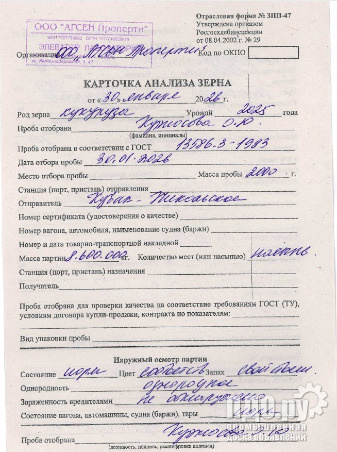 Отраслевая форма № ЗПП-47
Утверждена приказом
Росгосхлебинспекции
от 08.04.2002 г. № 29
ООО "АГСЕН Проперти"
Организация ООО "Агсен Проперти" Код по ОКПО
КАРТОЧКА АНАЛИЗА ЗЕРНА
от « 30 » января 20 26 г.
Род зерна кукуруза Урожай 2025 года
Проба отобрана
(фамилия, инициалы)
Проба отобрана в соответствии с ГОСТ 13586.3-1983
Дата отбора пробы 30.01.2026
Место отбора пробы Масса пробы 2000 г.
Станция (порт, пристань) отправления
Отправитель
Номер сертификата (удостоверения о качестве)
Номер вагона, автомобиля, наименование судна (баржи)
Номер и дата товарно-транспортной накладной
Масса партии Количество мест (или насыпью)
Станция (порт, пристань) назначения
Получатель
Проба отобрана для проверки качества на соответствие требованиям ГОСТ (ТУ),
условиям договора купли-продажи, контракта по показателям:
Вид упаковки пробы
Наружный осмотр партии
Состояние норм Цвет Запах
Однородность однородное
Зараженность вредителями не обнаружено
Состояние вагона, автомашины, судна (баржи), тары норм
Проба отобрана
(должность, подпись, расшифровка подписи)